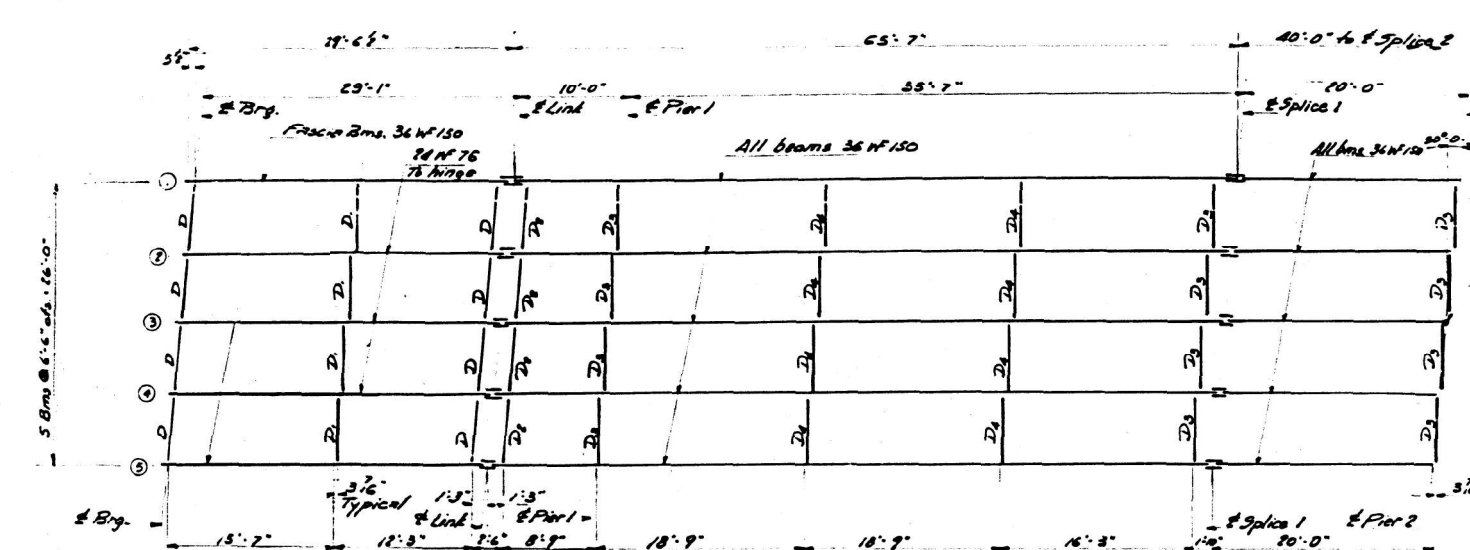 29'-6½" 65'-7" 40'-0" to ℄ Splice 2
5½"
29'-1" 10'-0" 55'-7" 20'-0"
℄ Brg. ℄ Link ℄ Pier 1 ℄ Splice 1
Fascia Bms. 36 WF 150
24 WF 76
To hinge
All beams 36 WF 150
All bms 36 WF 150
①
D D. D D2 D3 D4 D4 D3 D3
②
D D. D D2 D3 D4 D4 D3 D3
③
D D. D D2 D3 D4 D4 D3 D3
④
D D. D D2 D3 D4 D4 D3 D3
⑤
5 Bms @ 6'-6" cts. = 26'-0"
3 7/16"
Typical
1'-3" 1'-3"
℄ Brg. ℄ Link ℄ Pier 1 ℄ Splice 1 ℄ Pier 2
15'-7" 12'-3" 2'-6" 8'-9" 18'-9" 18'-9" 16'-3" 1'-10" 20'-0"